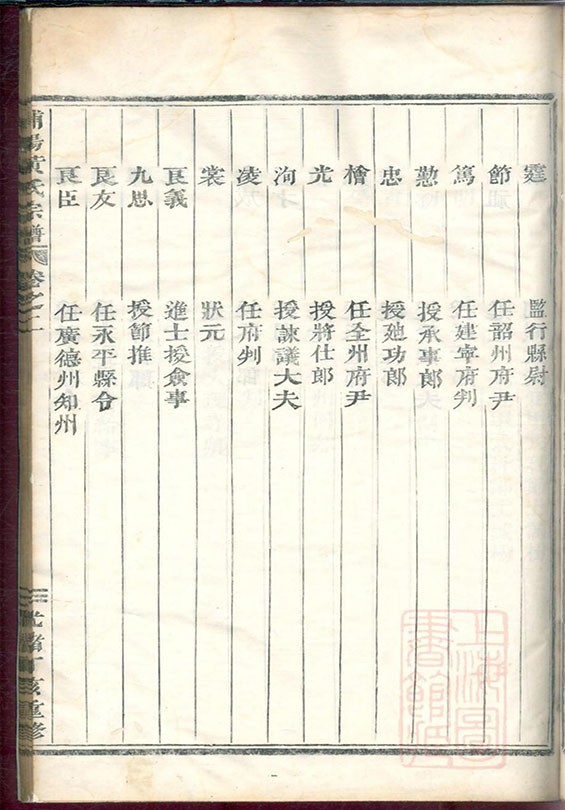 霆 監行縣尉
節 任韶州府尹
篤 任建寧府判
懃 授承事郎
忠 授廸功郎
檜 任全州府尹
光 授將仕郎
洵 授諫議大夫
凌 任府判
裳 狀元
艮義 進士授僉事
九思 授節推
艮友 任永平縣令
艮臣 任廣德州知州
浦陽黃氏宗譜 卷之一
光緒丁亥重修
上海圖書館藏